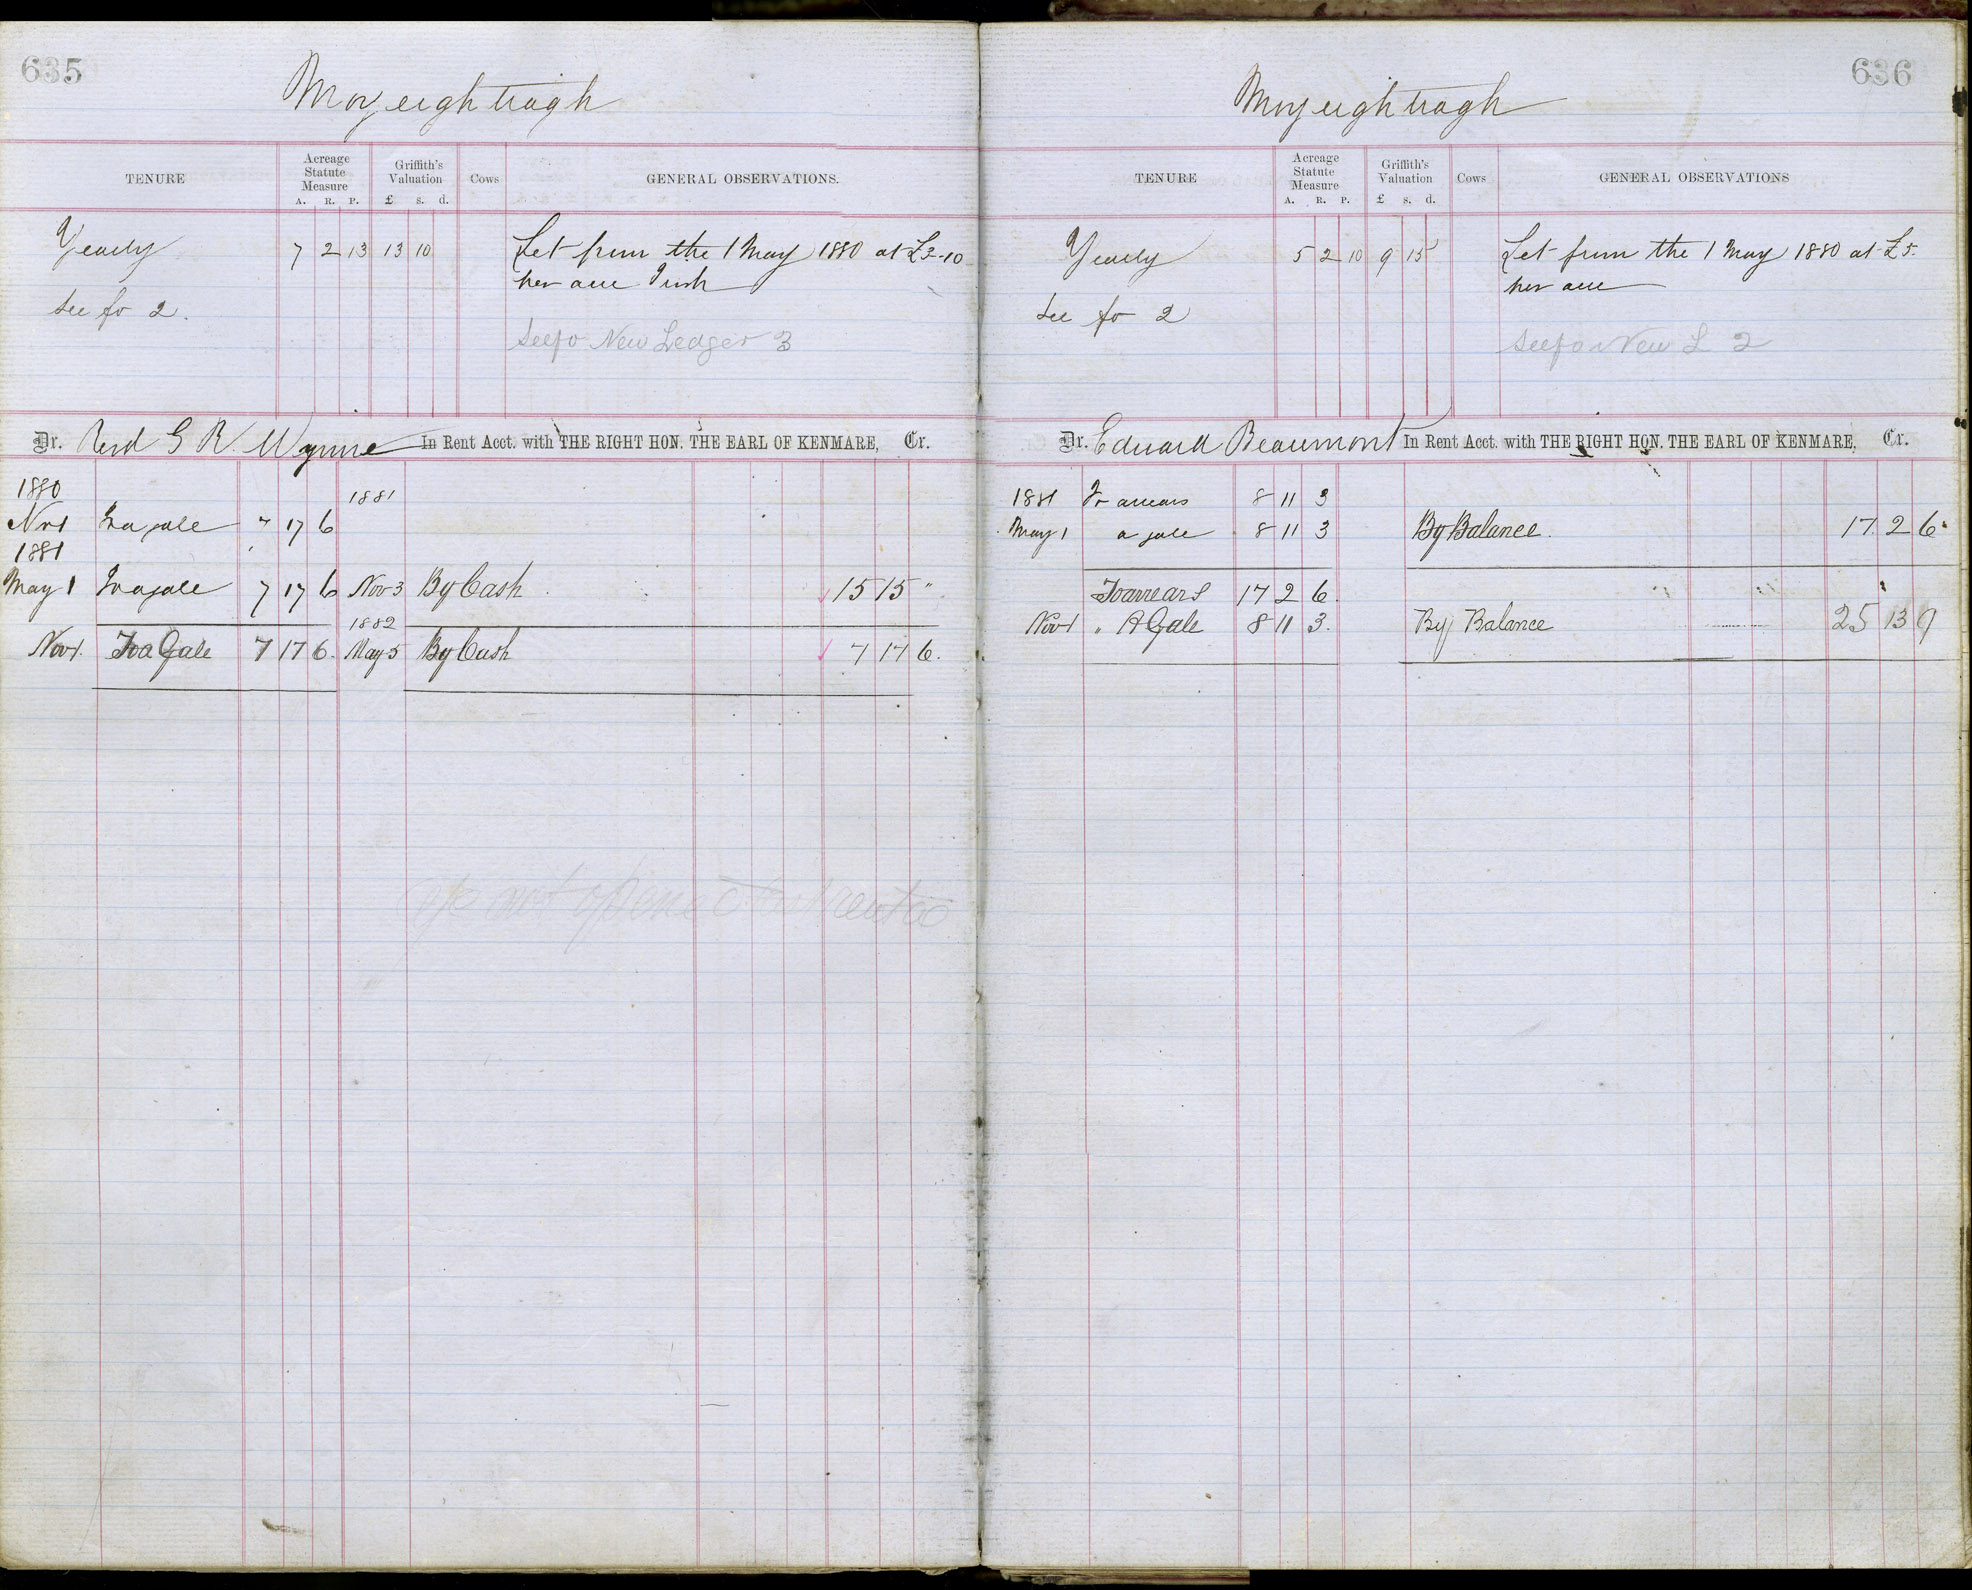 635
Moyeightragh
TENURE
Acreage Statute Measure
A. R. P.
Griffith's Valuation
£ s. d.
Cows
GENERAL OBSERVATIONS.
Yearly 7 2 13 13 10 Let from the 1 May 1880 at £3-10
per acre Irish
See fo 2.
See fo New Ledger 3
Dr. Revd G R. Wynne In Rent Acct. with THE RIGHT HON. THE EARL OF KENMARE, Cr.
1880 1881
Nov 1 To a gale 7 17 6
1881
May 1 To a gale 7 17 6 Nov 3 By Cash 15 15 "
1882
Nov 1. To a Gale 7 17 6. May 5 By Cash 7 17 6.
not opened
636
Moyeightragh
TENURE
Acreage Statute Measure
A. R. P.
Griffith's Valuation
£ s. d.
Cows
GENERAL OBSERVATIONS
Yearly 5 2 10 9 15 Let from the 1 May 1880 at £5.
per acre
See fo 2
See fo New L 2
Dr. Edward Beaumont In Rent Acct. with THE RIGHT HON. THE EARL OF KENMARE, Cr.
1881 To arrears 8 11 3
May 1 a gale 8 11 3 By Balance. 17. 2 6.
To arrears 17 2 6.
Nov 1 " A Gale 8 11 3. By Balance 25 13 9